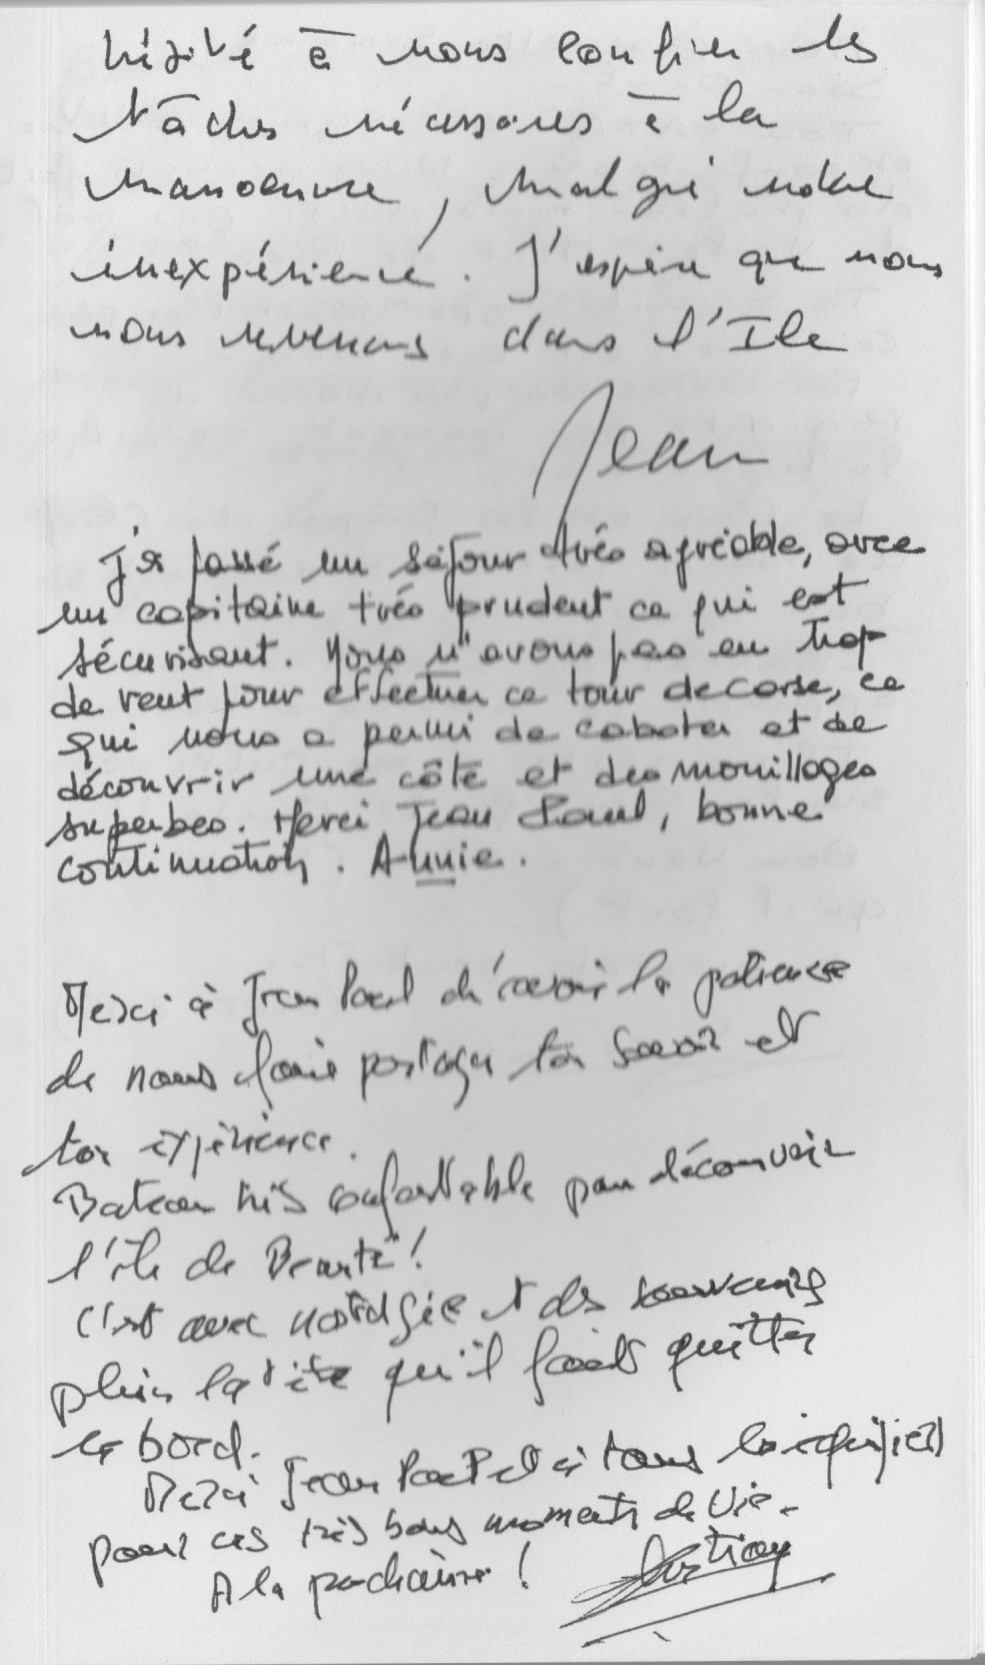 hésité à nous confier les
tâches nécessaires à la
manoeuvre, malgré notre
inexpérience. J'espère que nous
nous reverrons dans l'Ile
Jean
J'ai passé un séjour très agréable, avec
un capitaine très prudent ce qui est
sécurisant. Nous n'avons pas eu trop
de vent pour effectuer ce tour de corse, ce
qui nous a permi de caboter et de
découvrir une côte et des mouillages
superbes. Merci Jean Paul, bonne
continuation. Annie.
Merci à Jean Paul d'avoir la patience
de nous faire partager ton savoir et
ton expérience.
Bateau très confortable pour découvrir
l'île de Beauté!
C'est avec nostalgie et des souvenirs
plein la tête qu'il faut quitter
le bord.
Merci Jean Paul et à tous les équipiers
pour ces très bons moments de vie.
A la prochaine!